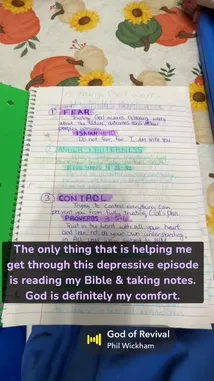 ① FEAR
Trusting God means
about the future,
ISAIAH 41:10
Do not fear, for I am with you
2 ANGER & BITTERNESS
EPHESIANS 4:31-32
③ CONTROL
Trying to control everything can
prevent you from fully trusting God's plan.
PROVERBS 3:5-6
Trust in the Lord with all your heart
and lean not on your own understanding;
in all your ways submit to Him
The only thing that is helping me
get through this depressive episode
is reading my Bible & taking notes.
God is definitely my comfort.
God of Revival
Phil Wickham